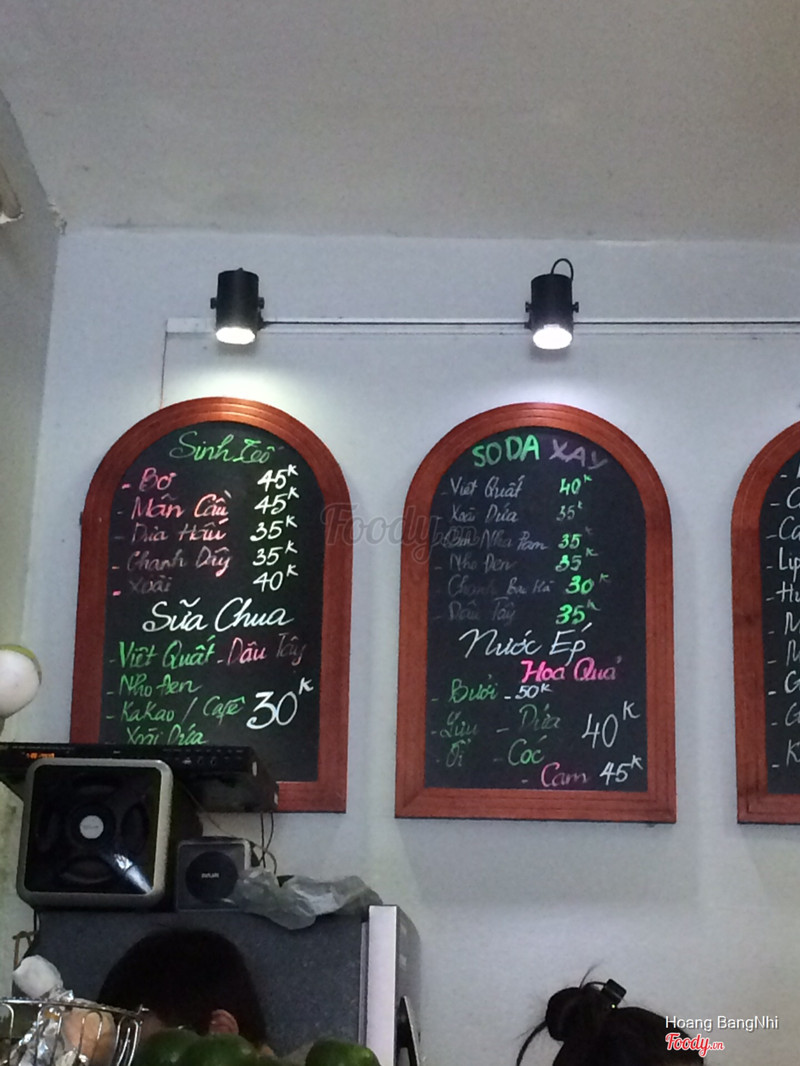 Sinh Tố
- Bơ 45K
- Mãn Cầu 45K
- Dưa Hấu 35K
- Chanh Dây 35K
- Xoài 40K
Sữa Chua
- Việt Quất - Dâu Tây
- Nho Đen
- KaKao / Café 30K
Xoài Dứa
SODA XAY
- Việt Quất 40K
- Xoài Dứa 35K
Nha Đam 35K
- Nho Đen 35K
- Chanh Bạc Hà 30K
- Dâu Tây 35K
Nước Ép
Hoa Quả
- Bưởi - 50K
- Lựu - Dứa 40K
- Ổi - Cóc
- Cam 45K
Foody.vn
Hoang BangNhi
Foody.vn